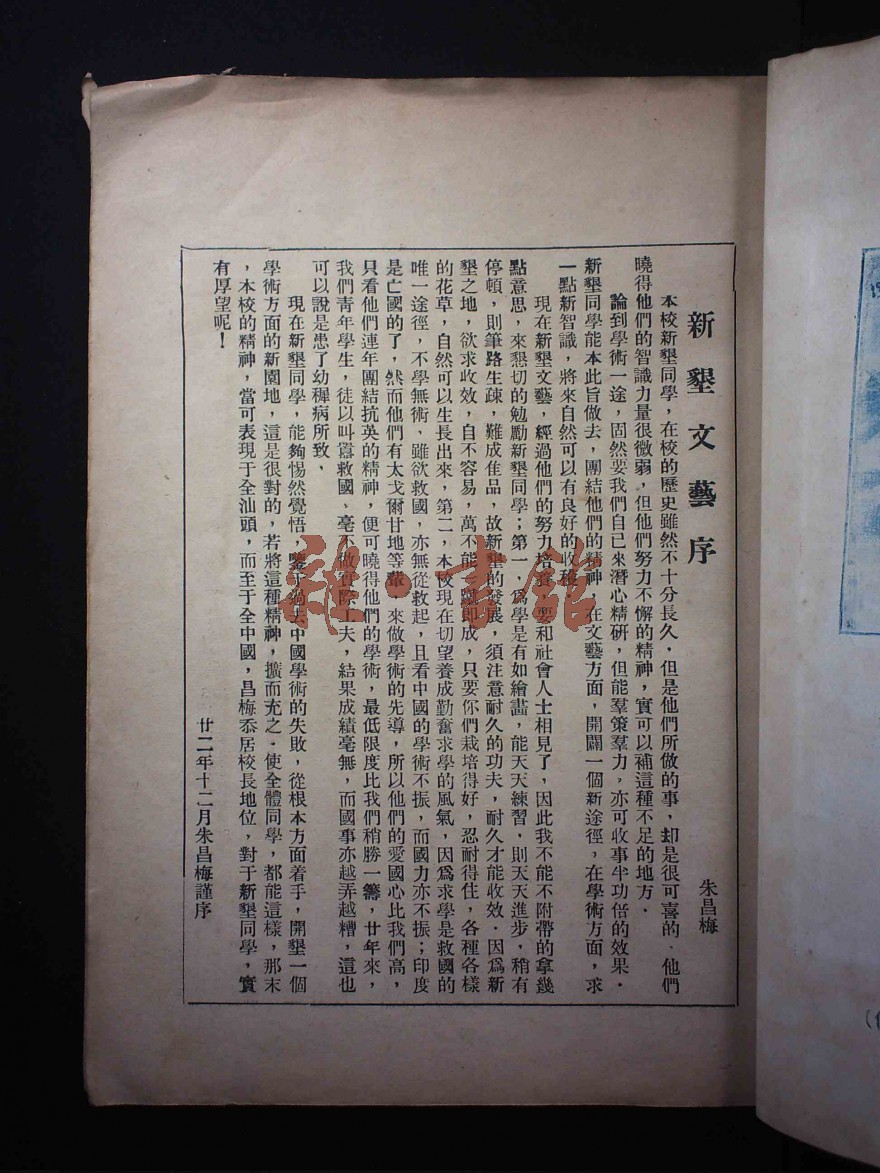 新墾文藝序
朱昌梅
本校新墾同學，在校的歷史雖然不十分長久，但是他們所做的事，却是很可喜的．他們
曉得他們的智識力量很微弱，但他們努力不懈的精神，實可以補這種不足的地方．
論到學術一途，固然要我們自已來潛心精研，但能羣策羣力，亦可收事半功倍的效果．
新墾同學能本此旨做去，團結他們的精神，在文藝方面，開闢一個新途徑，在學術方面，求
一點新智識，將來自然可以有良好的收穫．
現在新墾文藝，經過他們的努力培養，要和社會人士相見了，因此我不能不附帶的拿幾
點意思，來懇切的勉勵新墾同學；第一，爲學是有如繪畫，能天天練習，則天天進步，稍有
停頓，則筆路生疎，難成佳品，故新墾的發展，須注意耐久的功夫，耐久才能收效．因爲新
墾之地，欲求收效，自不容易，萬不能一蹴即成，只要你們栽培得好，忍耐得住，各種各樣
的花草，自然可以生長出來，第二，本校現在切望養成勤奮求學的風氣，因爲求學是救國的
唯一途徑，不學無術，雖欲救國，亦無從救起，且看中國的學術不振，而國力亦不振；印度
是亡國的了，然而他們有太戈爾甘地等輩，來做學術的先導，所以他們的愛國心比我們高，
只看他們連年團結抗英的精神，便可曉得他們的學術，最低限度比我們稍勝一籌，廿年來，
我們青年學生，徒以叫囂救國，毫不做實際工夫，結果成績毫無，而國事亦越弄越糟，這也
可以說是患了幼穉病所致，
現在新墾同學，能夠惕然覺悟，鑒于過去中國學術的失敗，從根本方面着手，開墾一個
學術方面的新園地，這是很對的，若將這種精神，擴而充之．使全體同學，都能這樣，那末
，本校的精神，當可表現于全汕頭，而至于全中國，昌梅忝居校長地位，對于新墾同學，實
有厚望呢！
廿二年十二月朱昌梅謹序
雜·書館